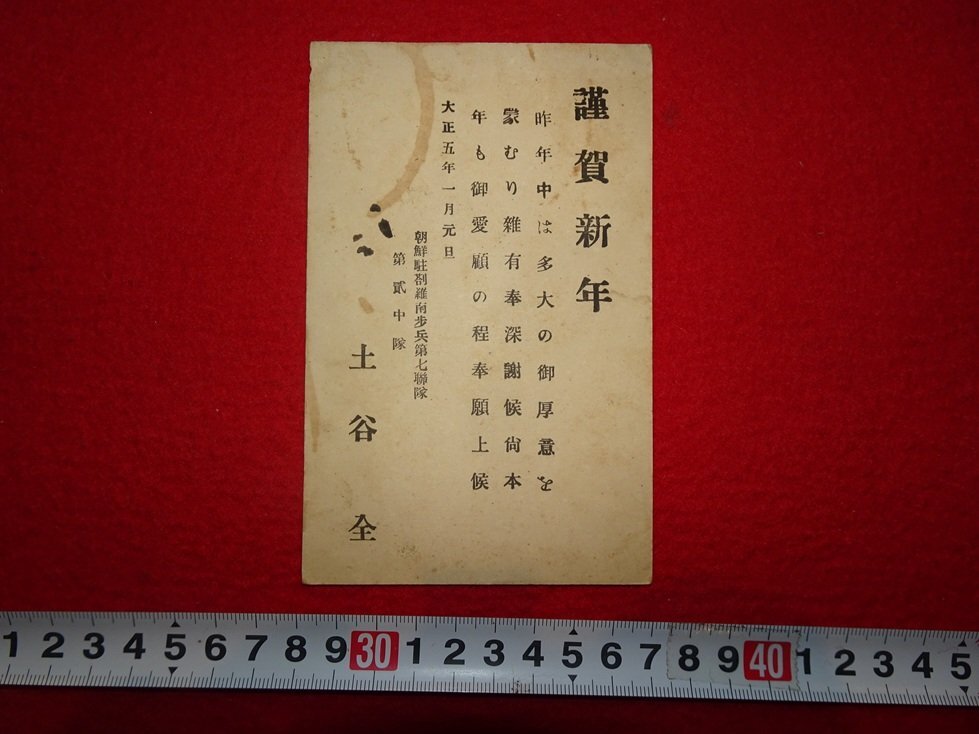 謹賀新年
昨年中は多大の御厚意を
蒙むり雑有奉深謝候尙本
年も御愛顧の程奉願上候
大正五年一月元旦
朝鮮駐剳羅南步兵第七聯隊
第貳中隊
土谷全
1 2 3 4 5 6 7 8 9 30 1 2 3 4 5 6 7 8 9 40 1 2 3 4 5